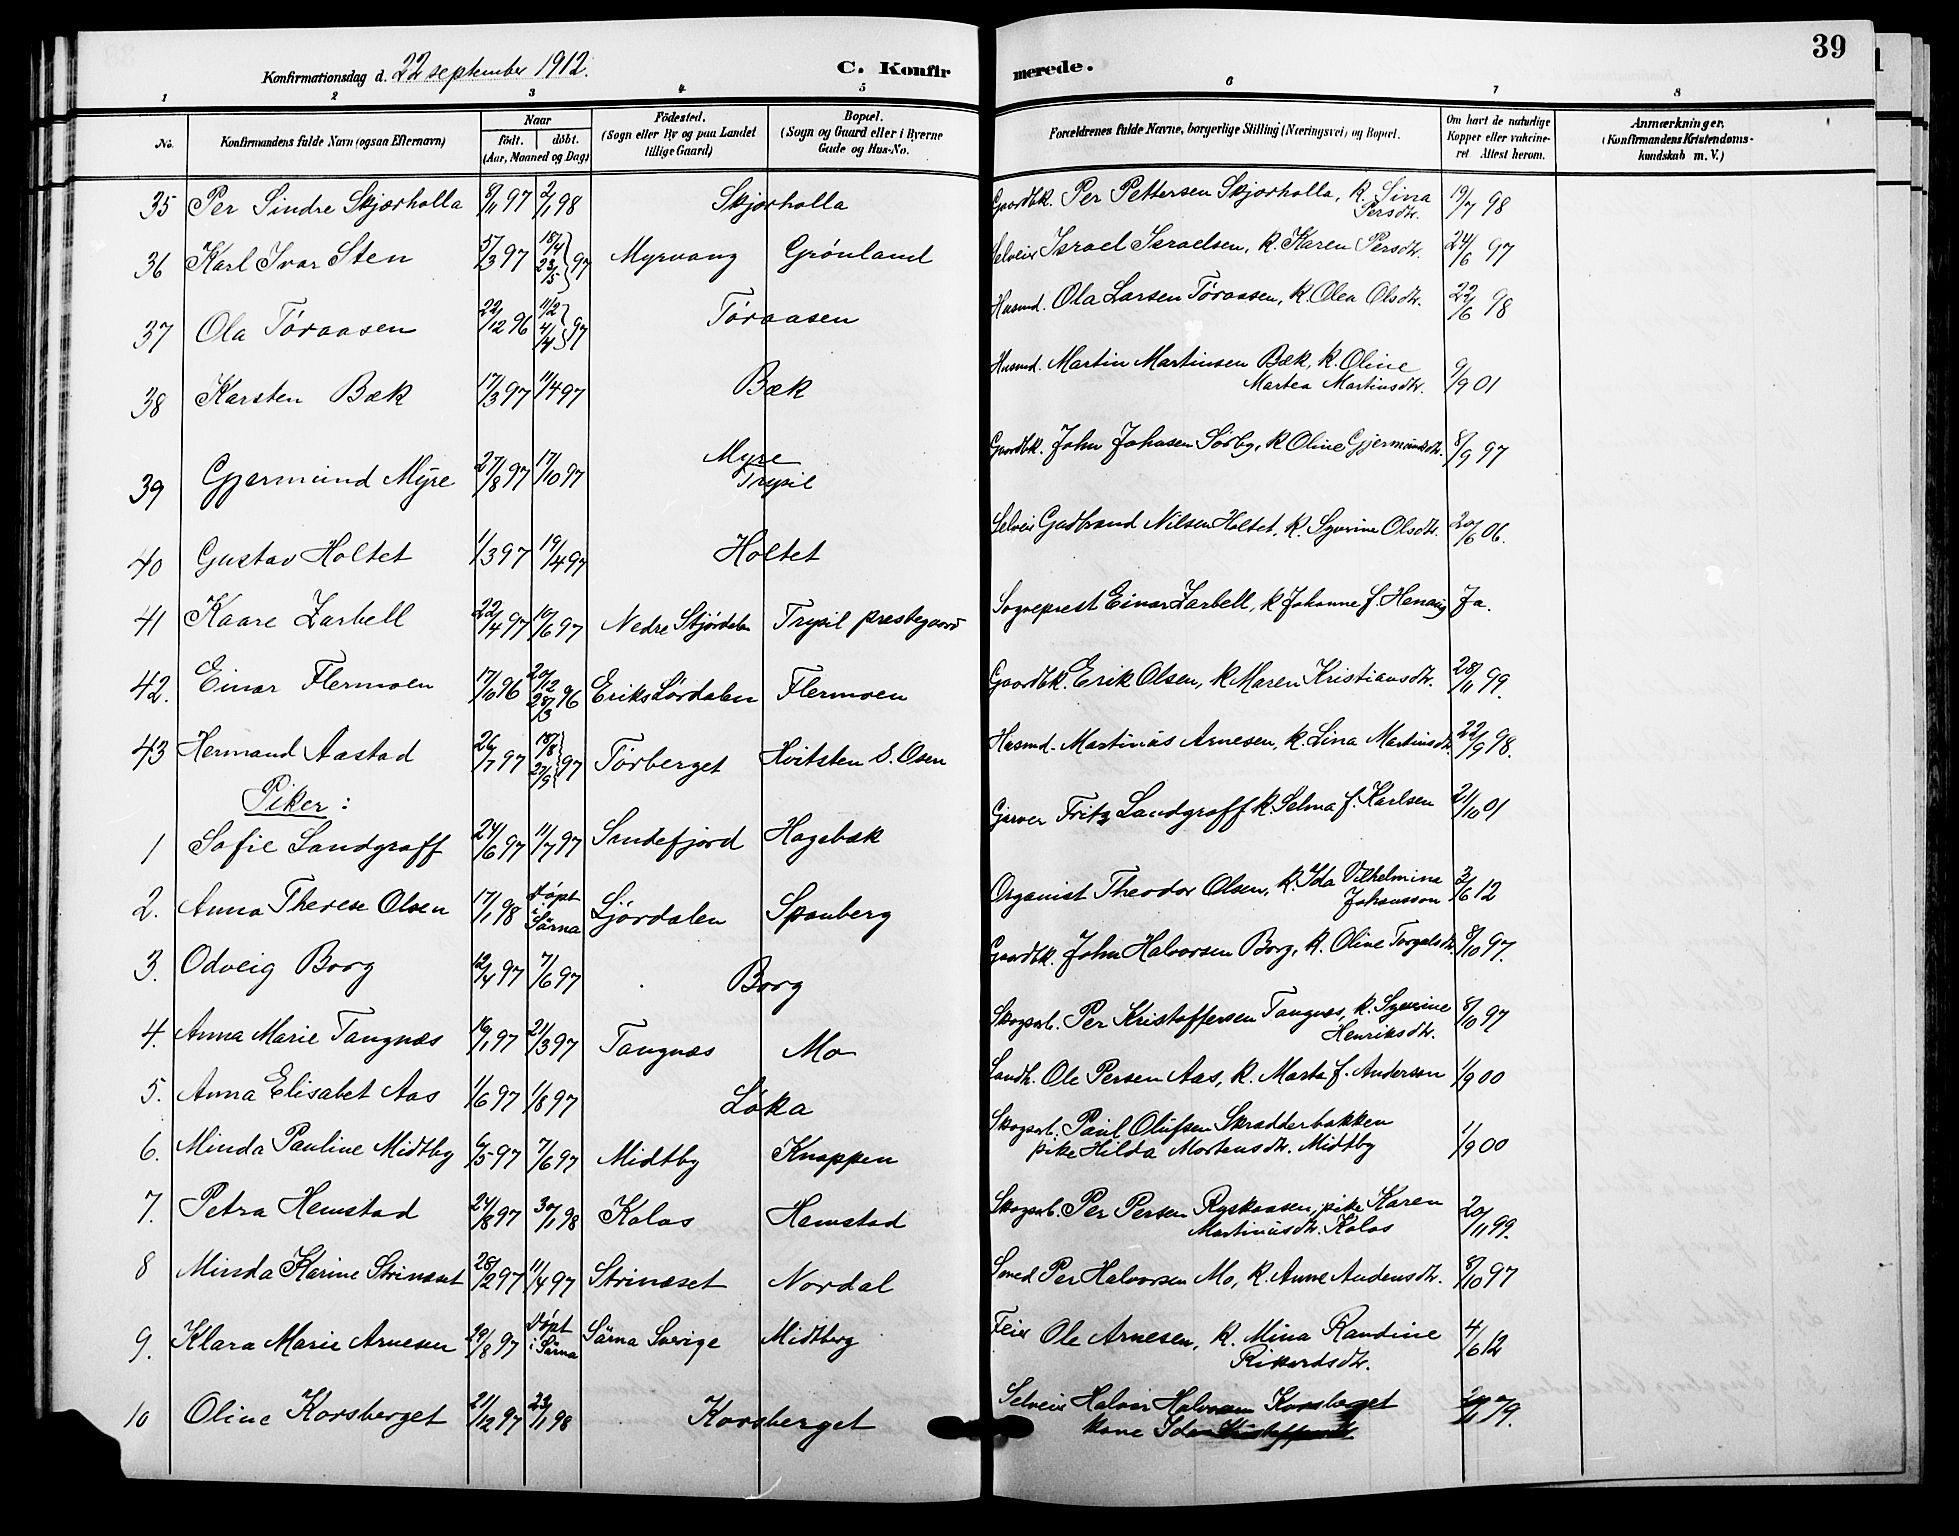 39
Konfirmationsdag d. 22 september 1912.
C. Konfirmerede.
1 2 3 4 5 6 7 8
No. Konfirmandens fulde Navn (ogsaa Efternavn) Naar født. døbt. (Aar, Maaned og Dag) Fødested. (Sogn eller By og paa Landet tillige Gaard) Bopæl. (Sogn og Gaard eller i Byerne Gade og Hus-No. Forældrenes fulde Navne, borgerlige Stilling (Næringsvei) og Bopæl. Om havt de naturlige Kopper eller vakcineret Attest herom. Anmærkninger. (Konfirmandens Kristendomskundskab m. V.)
35 Per Sindre Skjærholla 8/11 97 2/1 98 Skjørholla Gaardbk. Per Pettersen Skjørholla, k. Lina Persdtr. 19/7 98
36 Karl Ivar Sten 5/3 97 18/4 23/5 97 Myrvang Grønland Selveier Israel Israelsen, k. Karen Persdtr. 24/6 97
37 Ola Tøraasen 22/12 96 11/2 4/4 97 Tøraasen Husmd. Ola Larsen Tøraasen, k. Olea Olsdtr. 22/6 98
38 Karsten Bæk 17/3 97 11/4 97 Bæk Husmd. Martin Martinsen Bæk, k. Oline Martea Martinsdtr. 9/9 01
39 Gjermund Myre 27/8 97 17/10 97 Myre Trysil Gaardbk. John Johnsen Sørby, k Oline Gjermundsdtr. 8/9 97
40 Gustav Holtet 1/3 97 19/4 97 Holtet Selveier Gudbrand Nilsen Holtet, k. Syverine Olsdtr. 20/6 06.
41 Kaare Zarbell 22/4 97 10/6 97 Nedre Stjørdalen Trysil prestegaard Sogneprest Einar Zarbell, k Johanne f. Hennig Ja.
42. Einar Flermoen 17/10 96 20/12 28/3 96 Eriks Lørdalen Flermoen Gaardbk. Erik Olsen, k. Maren Kristiansdtr. 28/11 99.
43 Hermand Aastad 26/7 97 18/8 27/9 97 Tørberget Hvitsten S. Osen Husmd. Martinus Arnesen, k. Lina Martinsdtr. 22/9 98.
Piker:
1 Sofie Landgraff 24/6 97 11/7 97 Sandefjord Hagebæk Garver Fritz Landgraff k. Selma f. Karlsen 21/10 01
2. Anna Therese Olsen 17/1 98 døpt i Särna Ljørdalen Spanberg Organist Theodor Olsen, k. Ida Vilhelmina Johansson 3/6 12
3. Odveig Borg 12/4 97 7/6 97 Borg Gaardbk. John Halvorsen Borg, k. Oline Torgalsdtr. 8/10 97.
4. Anna Marie Tangnæs 16/1 97 21/3 97 Tangnæs Mo Skogsarb. Per Kristoffersen Tangnæs, k. Syverine Henriksdtr. 8/10 97
5. Anna Elisabet Aas 1/6 97 1/8 97 Løka Landh. Ole Persen Aas, k. Marta f. Anderson 1/9 00
6. Minda Pauline Midtby 6/5 97 7/6 97 Midtby Knappen Skogsarb. Paul Olufsen Skradderbakken pike Hilda Mortensdtr. Midtby 1/9 00
7. Petra Hemstad 24/8 97 30/1 98 Kolos Hemstad Skogsarb. Per Persen Ryskaasen, pike Karen Martinusdtr. Kolos 20/11 99.
8 Minda Karine Strinæset 28/2 97 11/4 97 Strinæset Nordal Smed Per Halvorsen Mo, k. Anne Audensdtr. 8/10 97
9. Klara Marie Arnesen 29/8 97 døpt i Särna Särna Sverige Midtberg Feier Ole Arnesen, k. Mina Randine Rikardsdtr. 4/6 12
10 Oline Korsberget 21/12 97 23/1 98 Korsberget Selveier Halvor Halvorsen Korsberget kone Ida